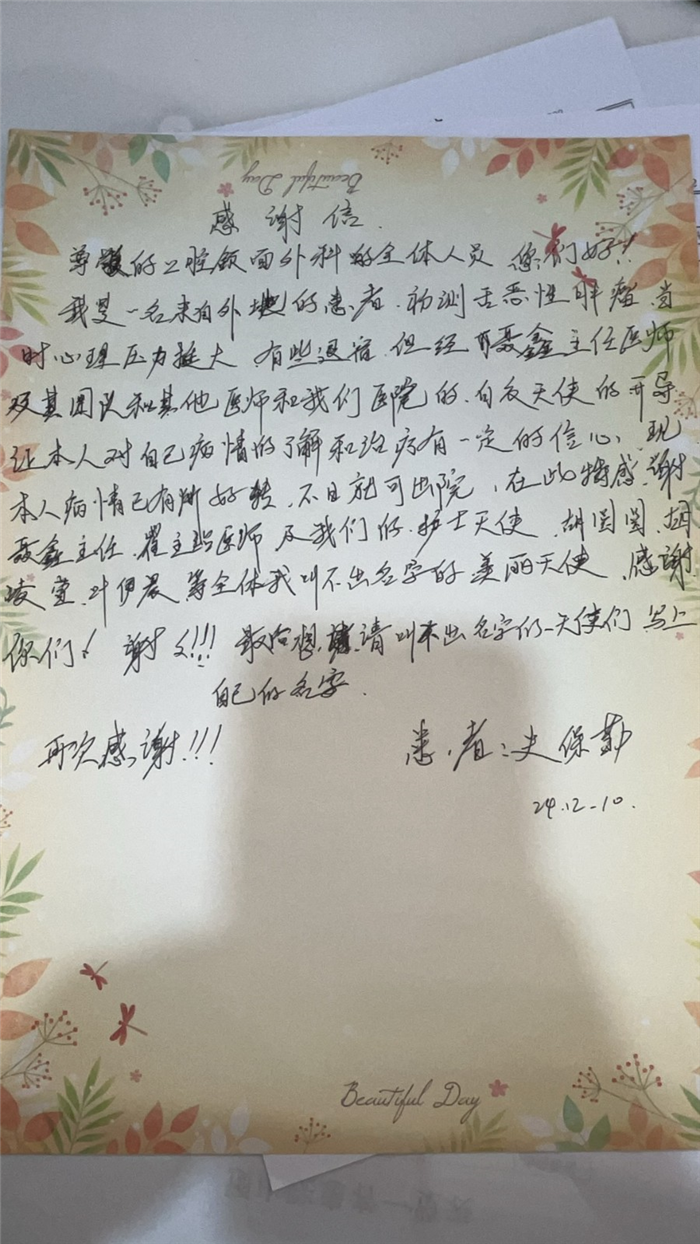 Beautiful Day
感谢信.
尊敬的口腔颌面外科的全体人员 您们好!!
我是一名来自外地的患者.初测舌恶性肿瘤.当
时心理压力挺大.有些退缩.但经 聂鑫主任医师
及其团队和其他医师和我们医院的.白衣天使的开导
让本人对自己病情的了解和治疗有一定的信心、现
本人病情已有所好转、不日就可出院,在此特感.谢
聂鑫主任.翟主治医师 及我们的.护士天使.胡圆圆.胡
凌萱.叶伊晨 等全体我叫不出名字的美丽天使.感谢
你们! 谢谢!!! 最后 请叫不出名字的天使们写上
自己的名字.
再次感谢.!!!
患.者:史保勤
24.12-10.
Beautiful Day